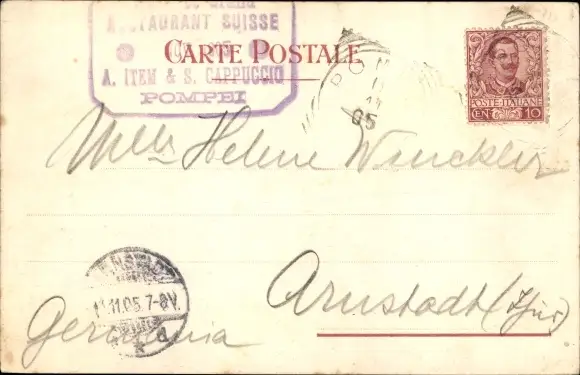 RESTAURANT SUISSE
A. ITEM & S. CAPPUCCIO
POMPEI
CARTE POSTALE
05
POSTE ITALIANE
CEN 10
Mlle Helene Winckler
ARNSTADT
11.11.05. 7-8V.
Arnstadt (Thür)
Germania